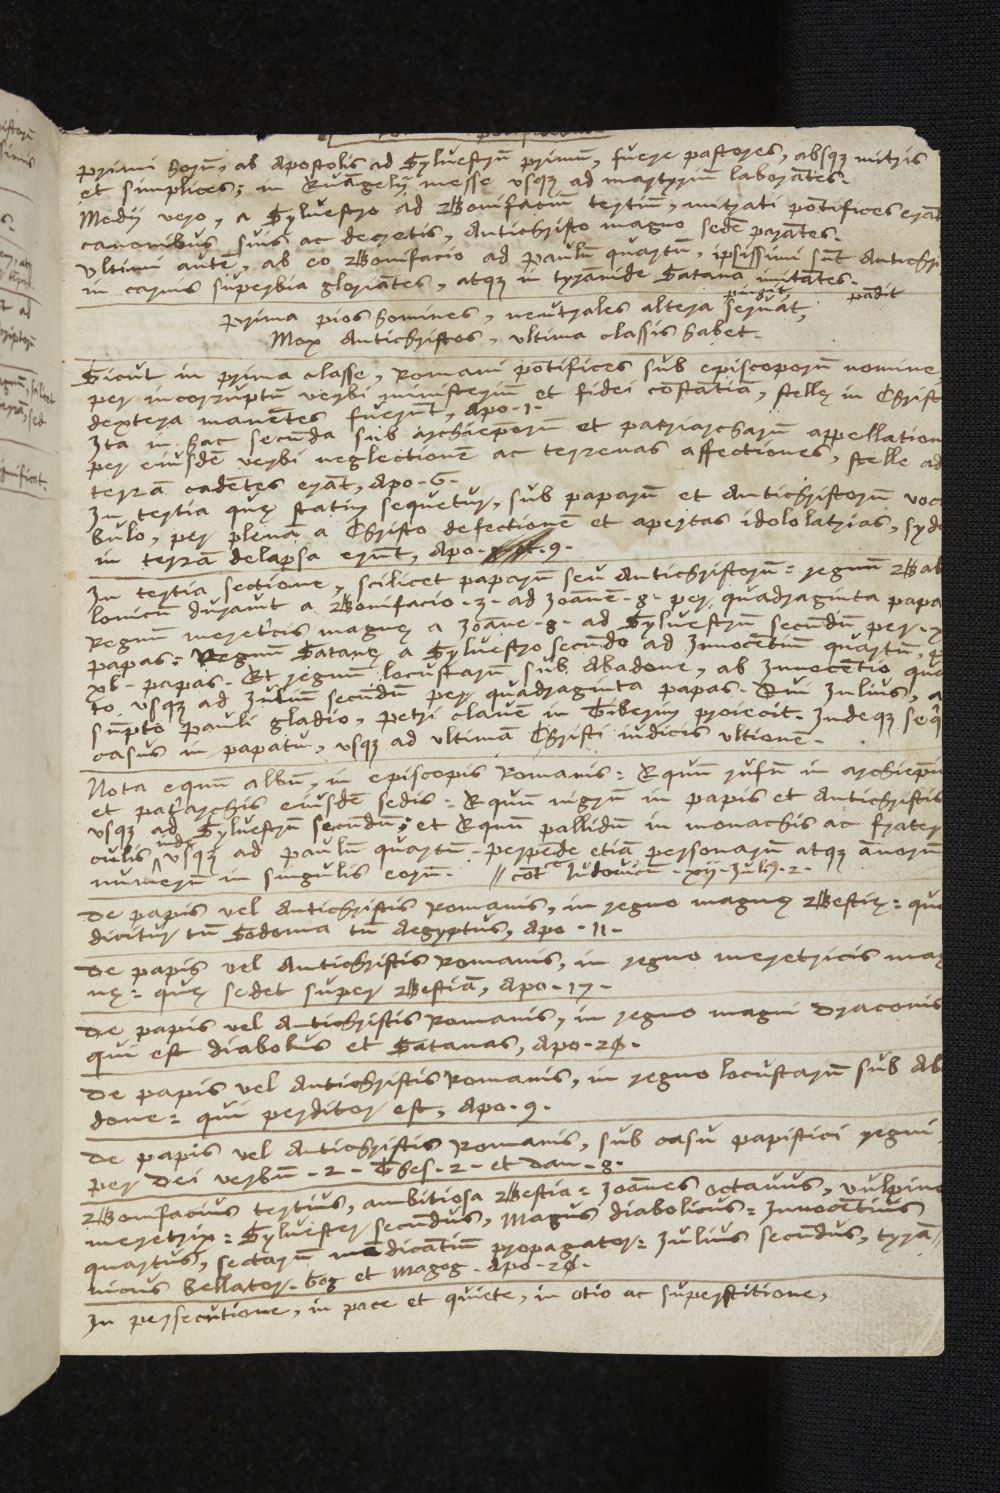 primi horū, ab Apostolis ad Syluestrū primū, fuere pastores, absqz mitris
et simplices; in Euāgelij messe vsqz ad martyriū laborātes.
Medij vero, a Syluestro ad Bonifaciū tertiū, mitrati pōtifices erāt
canonibus suis ac decretis, Antichristo magno sedē parātes.
Vltimi autē, ab eo Bonifacio ad Paulū quartū, ipsissimi sūt Antichri
in carnis superbia gloriātes, atqz in tyrānide Satanā imitātes.
pingit pādit
Prima pios homines, neutrales altera seruat,
Mox Antichristos, vltima classis habet.
Sicut in prima classe, Romani pōtifices sub episcoporū nomine
per incorruptū verbi ministeriū et fidei cōstātiā, stellę in Christ
dextera manētes fuerūt, Apo. 1.
Ita in hac secūda sub archiep̄orū et patriarcharū appellation
per eiusdē verbi neglectionē ac terrenas affectiones, stelle ad
terrā cadētes erāt, Apo. 6.
In tertia quę statim sequetur, sub paparū et Antichristorū voc
bulo, per plenā a Christo defectionē et apertas idololatrias, syde
in terrā delapsa erūt, Apo. 9.
In tertia sectione, scilicet paparū seu Antichristorū: regnū Bab
lonicū durauit a Bonifacio .3. ad Ioānē .8. per quadraginta papa
Regnū meretricis magnę a Ioāne .8. ad Syluestrū secūdū per
papas: Regnū Satanę a Syluestro secūdo ad Innocētiū quartū, p
xl. papas. Et regnū locustarū sub Abadone, ab Innocētio qua
to vsqz ad Iuliū secūdū per quadraginta papas. Qui Iulius, a
sūpto Pauli gladio, Petri clauē in Tiberim proiecit. Indeqz seq̄
casus in papatu, vsqz ad vltimā Christi iudicis vltionē.
Nota equū albū, in episcopis Romanis: Equū rufū in archiep̄i
et patriarchis eiusdē sedis: Equū nigrū in papis et Antichristis
vsqz ad Syluestrū secūdū; et Equū pallidū in monachis ac frater
culis inde vsqz ad Paulū quartū. Perpēde etiā personarū atqz ānorū
numerū in singulis eorū. // cōt Ludouicū .xij. Iulij .2.
De papis vel Antichristis Romanis, in regno magnę Bestię: quę
dicitur tū Sodoma tū Aegyptus, Apo .11.
De papis vel Antichristis Romanis, in regno meretricis mag
nę: quę sedet super Bestiā, Apo .17.
De papis vel Antichristis Romanis, in regno magni Draconis
qui est diabolus et Satanas, Apo. 20.
De papis vel Antichristis Romanis, in regno locustarū sub Ab
done: qui perditor est, Apo. 9.
De papis vel Antichristis Romanis, sub casu papistici regni
per Dei verbū .2. Thes. 2. et Dan. 8.
Bonifacius tertius, ambitiosa Bestia: Ioānes octauus, vulpina
meretrix: Syluester secūdus, Magus diabolicus: Innocētius
quartus, sectarū mēdicātiū propagator: Iulius secūdus, tyrā/
nicus bellator. Gog et Magog. Apo. 20.
In persecutione, in pace et quiete, in otio ac superstitione,